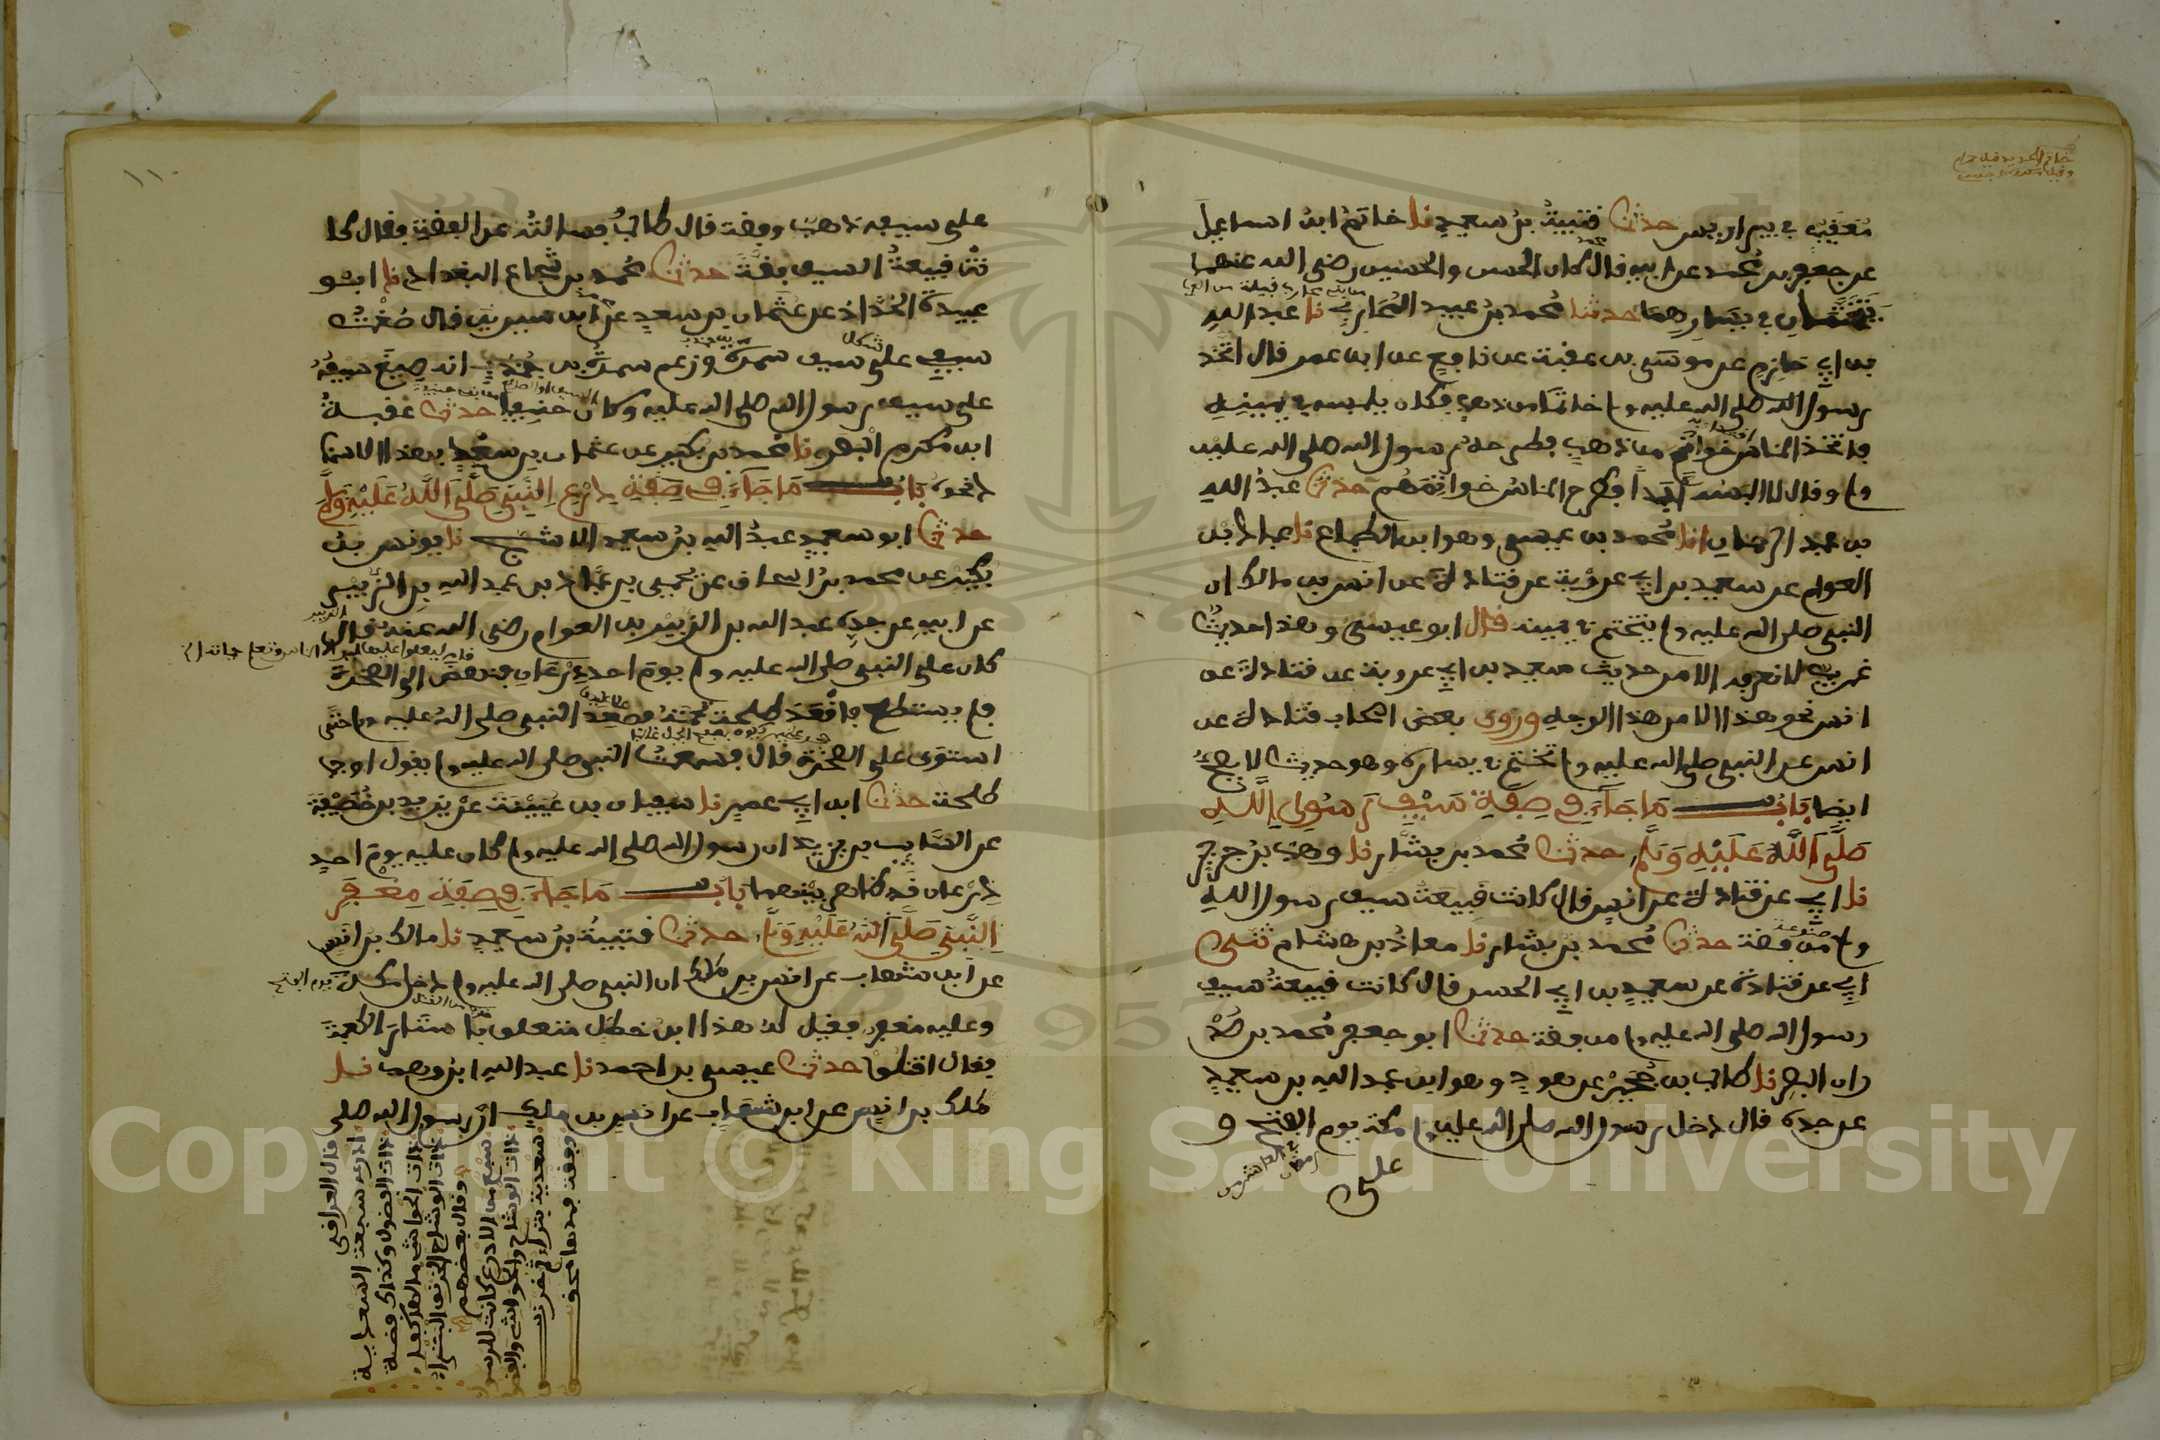 معيقيب في بير اريس حدثنا قتيبة بن سعيد نا حاتم ابن اسماعيل
عن جعفر بن محمد عن ابيه قال كان الحسن والحسين رضي الله عنهما
يتختمان في يسارهما حدثنا محمد بن عبيد المحاربي نا عبد العزيز
بن ابي حازم عن موسى بن عقبة عن نافع عن ابن عمر قال اتخذ
رسول الله صلى الله عليه وسلم خاتما من ذهب فكان يلبسه في يمينه
فاتخذ الناس خواتم من ذهب فطرحه رسول الله صلى الله عليه
وسلم وقال لا البسه ابدا فطرح الناس خواتمهم حدثنا عبد الله
بن عبد الرحمان انا محمد بن عيسى وهو ابن الطباع نا عباد بن
العوام عن سعيد بن ابي عروبة عن قتادة عن انس بن مالك ان
النبي صلى الله عليه وسلم يتختم في يمينه قال ابو عيسى وهذا حديث
غريب لا نعرفه الا من حديث سعيد بن ابي عروبة عن قتادة عن
انس نحو هذا الا من هذا الوجه وروى بعض اصحاب قتادة عن
انس عن النبي صلى الله عليه وسلم تختم في يساره وهو حديث لا يصح
ايضا باب ما جاء في صفة سيف رسول الله
صلى الله عليه وسلم حدثنا محمد بن بشار نا وهب بن جرير
نا ابي عن قتادة عن انس قال كانت قبيعة سيف رسول الله
وسلم من فضة حدثنا محمد بن بشار نا معاذ بن هشام ثنى
ابي عن قتادة عن سعيد بن ابي الحسن قال كانت قبيعة سيف
رسول الله صلى الله عليه وسلم من فضة حدثنا ابو جعفر محمد بن صد
ران البصر نا طالب بن حجير عن هود وهو ابن عبد الله بن سعيد
عن جده قال دخل رسول الله صلى الله عليه وسلم مكة يوم الفتح و
على
١١٠
على سيفه ذهب وفضة قال طالب فسالته عن الفضة فقال كا
نت قبيعة السيف فضة حدثنا محمد بن شجاع البغدادي نا ابو
عبيدة الحداد عن عثمان بن سعد عن ابن سيرين قال صنعت
سيفي على سيف سمرة وزعم سمرة بن جندب انه صنع سيفه
على سيف رسول الله صلى الله عليه وسلم وكان حنيفيا حدثنا عقبة
ابن مكرم البصر نا محمد بن بكير عن عثمان بن سعد بهذا الاسنا
د نحوه باب ما جاء في صفة درع النبي صلى الله عليه وسلم
حدثنا ابو سعيد عبد الله بن سعيد الاشج نا يونس بن
بكير عن محمد بن اسحاق عن يحيى بن عباد بن عبد الله بن الزبير
عن ابيه عن جده عبد الله بن الزبير بن العوام رضي الله عنه قال
كان على النبي صلى الله عليه وسلم يوم احد درعان فنهض الى الصخرة
فلم يستطع فاقعد طلحة تحته فصعد النبي صلى الله عليه وسلم حتى
استوى على الصخرة قال فسمعت النبي صلى الله عليه وسلم يقول اوجب
طلحة حدثنا ابن ابي عمر نا سفيان بن عيينة عن يزيد بن خصيفة
عن السايب بن يزيد ان رسول الله صلى الله عليه وسلم كان عليه يوم احد
درعان قد ظاهر بينهما باب ما جاء في صفة مغفر
النبي صلى الله عليه وسلم حدثنا قتيبة بن سعيد نا مالك بن انس
عن ابن شهاب عن انس بن مالك ان النبي صلى الله عليه وسلم دخل مكة يوم الفتح
وعليه مغفر فقيل له هذا ابن خطل متعلق با ستار الكعبة
فقال اقتلوه حدثنا عيسى بن احمد نا عبد الله بن وهب نا
ملك بن انس عن ابن شهاب عن انس بن ملك ان رسول الله صلى
قال العراقي
ادرعه سبعة السعدية
ذات الفضول وكذاك فضة
ذات الحواشي
ذات الوشاح الخرنق البتراء
وقال بعضهم
سبع من الادرع كانت للرسول
ذات الوشاح والحواشي والفضول
سعدية بتراء ثم خرنق
وفضة
Copyright © King Saud University
1957